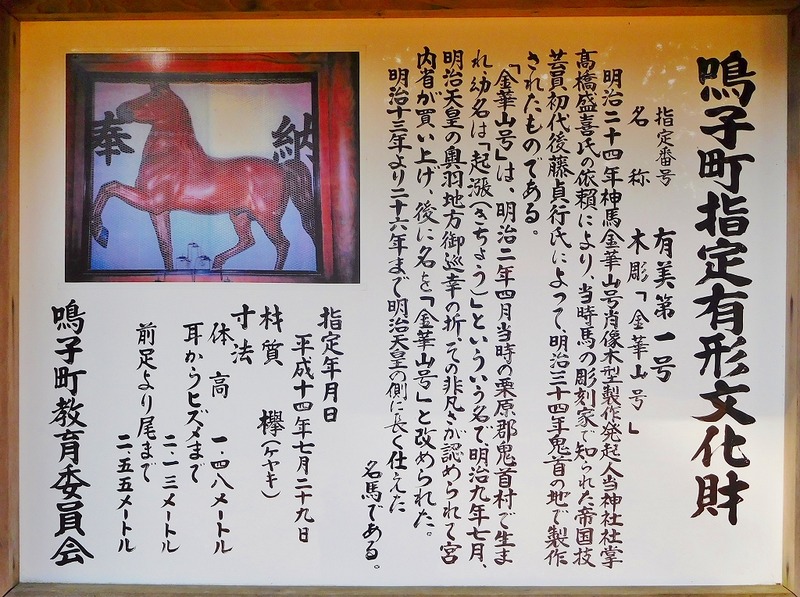 鳴子町指定有形文化財
指定番号 有美第一号
名称 木彫「金華山号」
明治二十四年神馬金華山号肖像木型製作発起人当神社社掌
高橋盛喜氏の依頼により、当時馬の彫刻家で知られた帝国技
芸員初代後藤貞行氏によって、明治三十四年鬼首の地で製作
されたものである。
「金華山号」は、明治二年四月当時の栗原郡鬼首村で生ま
れ、幼名は「起漲(きちょう)」といういう名で、明治九年七月、
明治天皇の奥羽地方御巡幸の折、その非凡さが認められて宮
内省が買い上げ、後に名を「金華山号」と改められた。
明治十三年より二十六年まで明治天皇の側に長く仕えた
名馬である。
奉
納
指定年月日
平成十四年七月二十九日
材質 欅(ケヤキ)
寸法
体高 一.四八メートル
耳からヒズメまで
二.一三メートル
前足より尾まで
二.五五メートル
鳴子町教育委員会